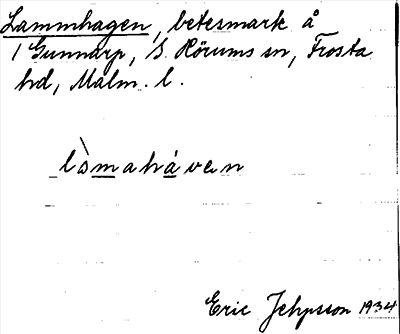 Lammhagen, betesmark å
1 Gunnarp, S. Hörums sn, Frosta
hd, Malm. l.
lòmaháven
Eric Jehpsson 1934